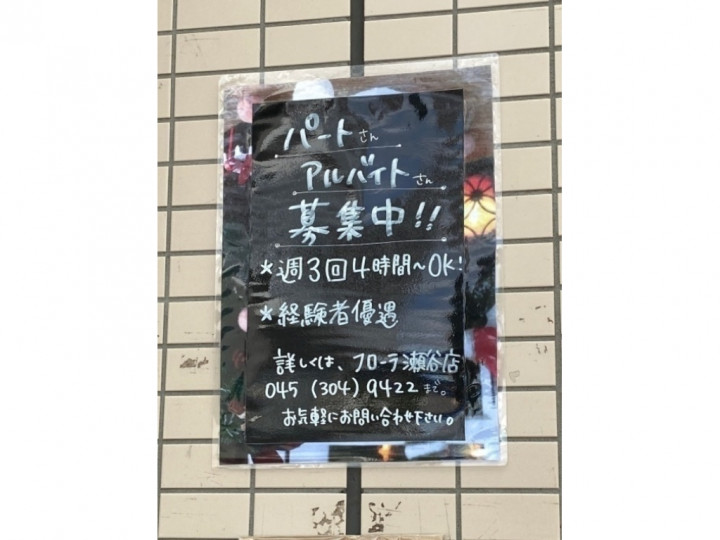 パートさん
アルバイトさん
募集中!!
*週3回4時間~OK!
*経験者優遇
詳しくは、フローラ瀬谷店
045(304)9422まで。
お気軽にお問い合わせ下さい。